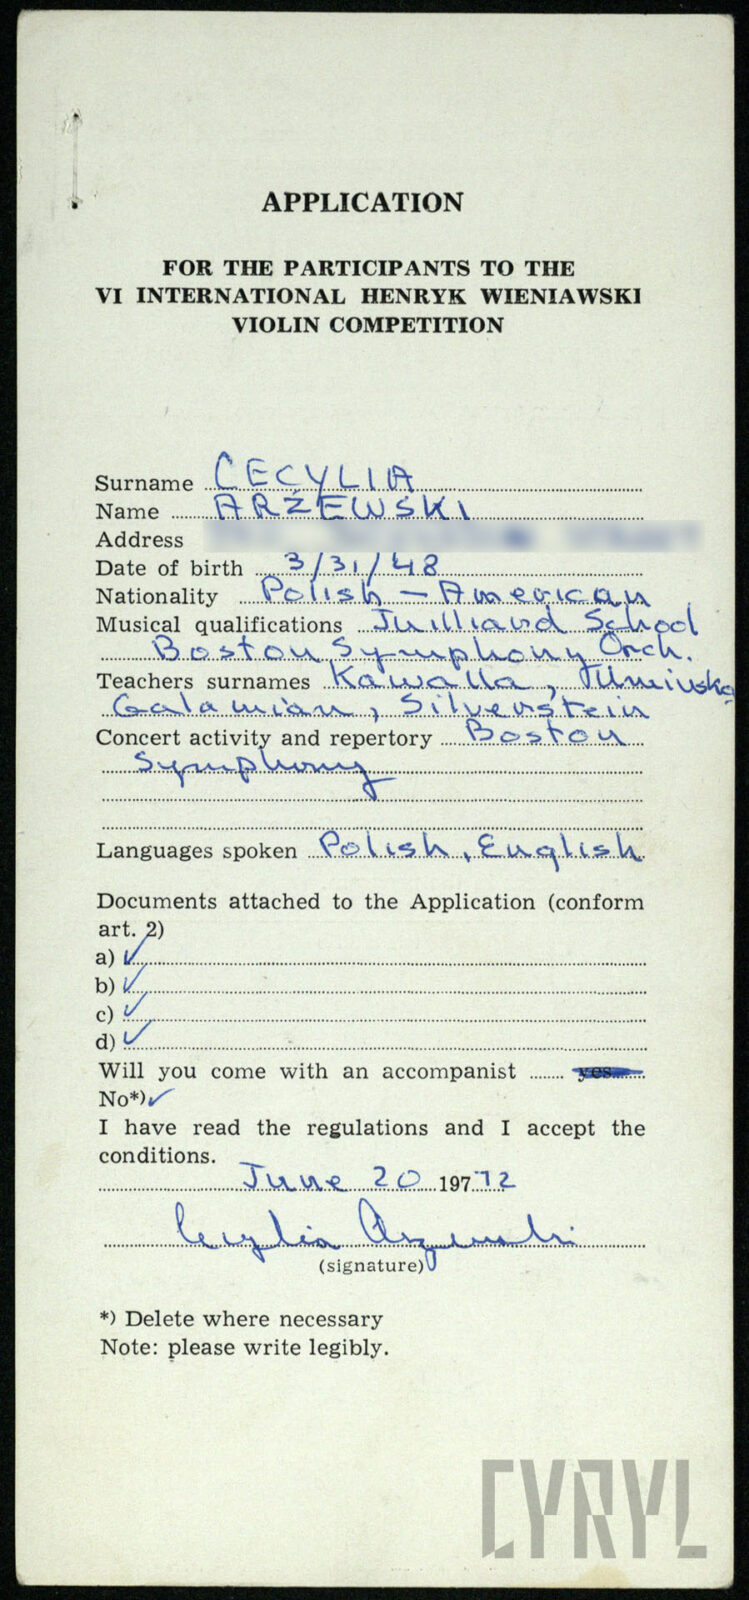 APPLICATION
FOR THE PARTICIPANTS TO THE
VI INTERNATIONAL HENRYK WIENIAWSKI
VIOLIN COMPETITION
Surname CECYLIA
Name ARZEWSKI
Address
Date of birth 3/31/48
Nationality Polish - American
Musical qualifications Juilliard School
Boston Symphony Orch.
Teachers surnames Kawalla, Umińska
Galamian, Silverstein
Concert activity and repertory Boston
Symphony
Languages spoken Polish, English
Documents attached to the Application (conform
art. 2)
a) ✓
b) ✓
c) ✓
d) ✓
Will you come with an accompanist yes
No*) ✓
I have read the regulations and I accept the
conditions.
June 20 197 72
Cecylia Arzewski
(signature)
*) Delete where necessary
Note: please write legibly.
CYRYL